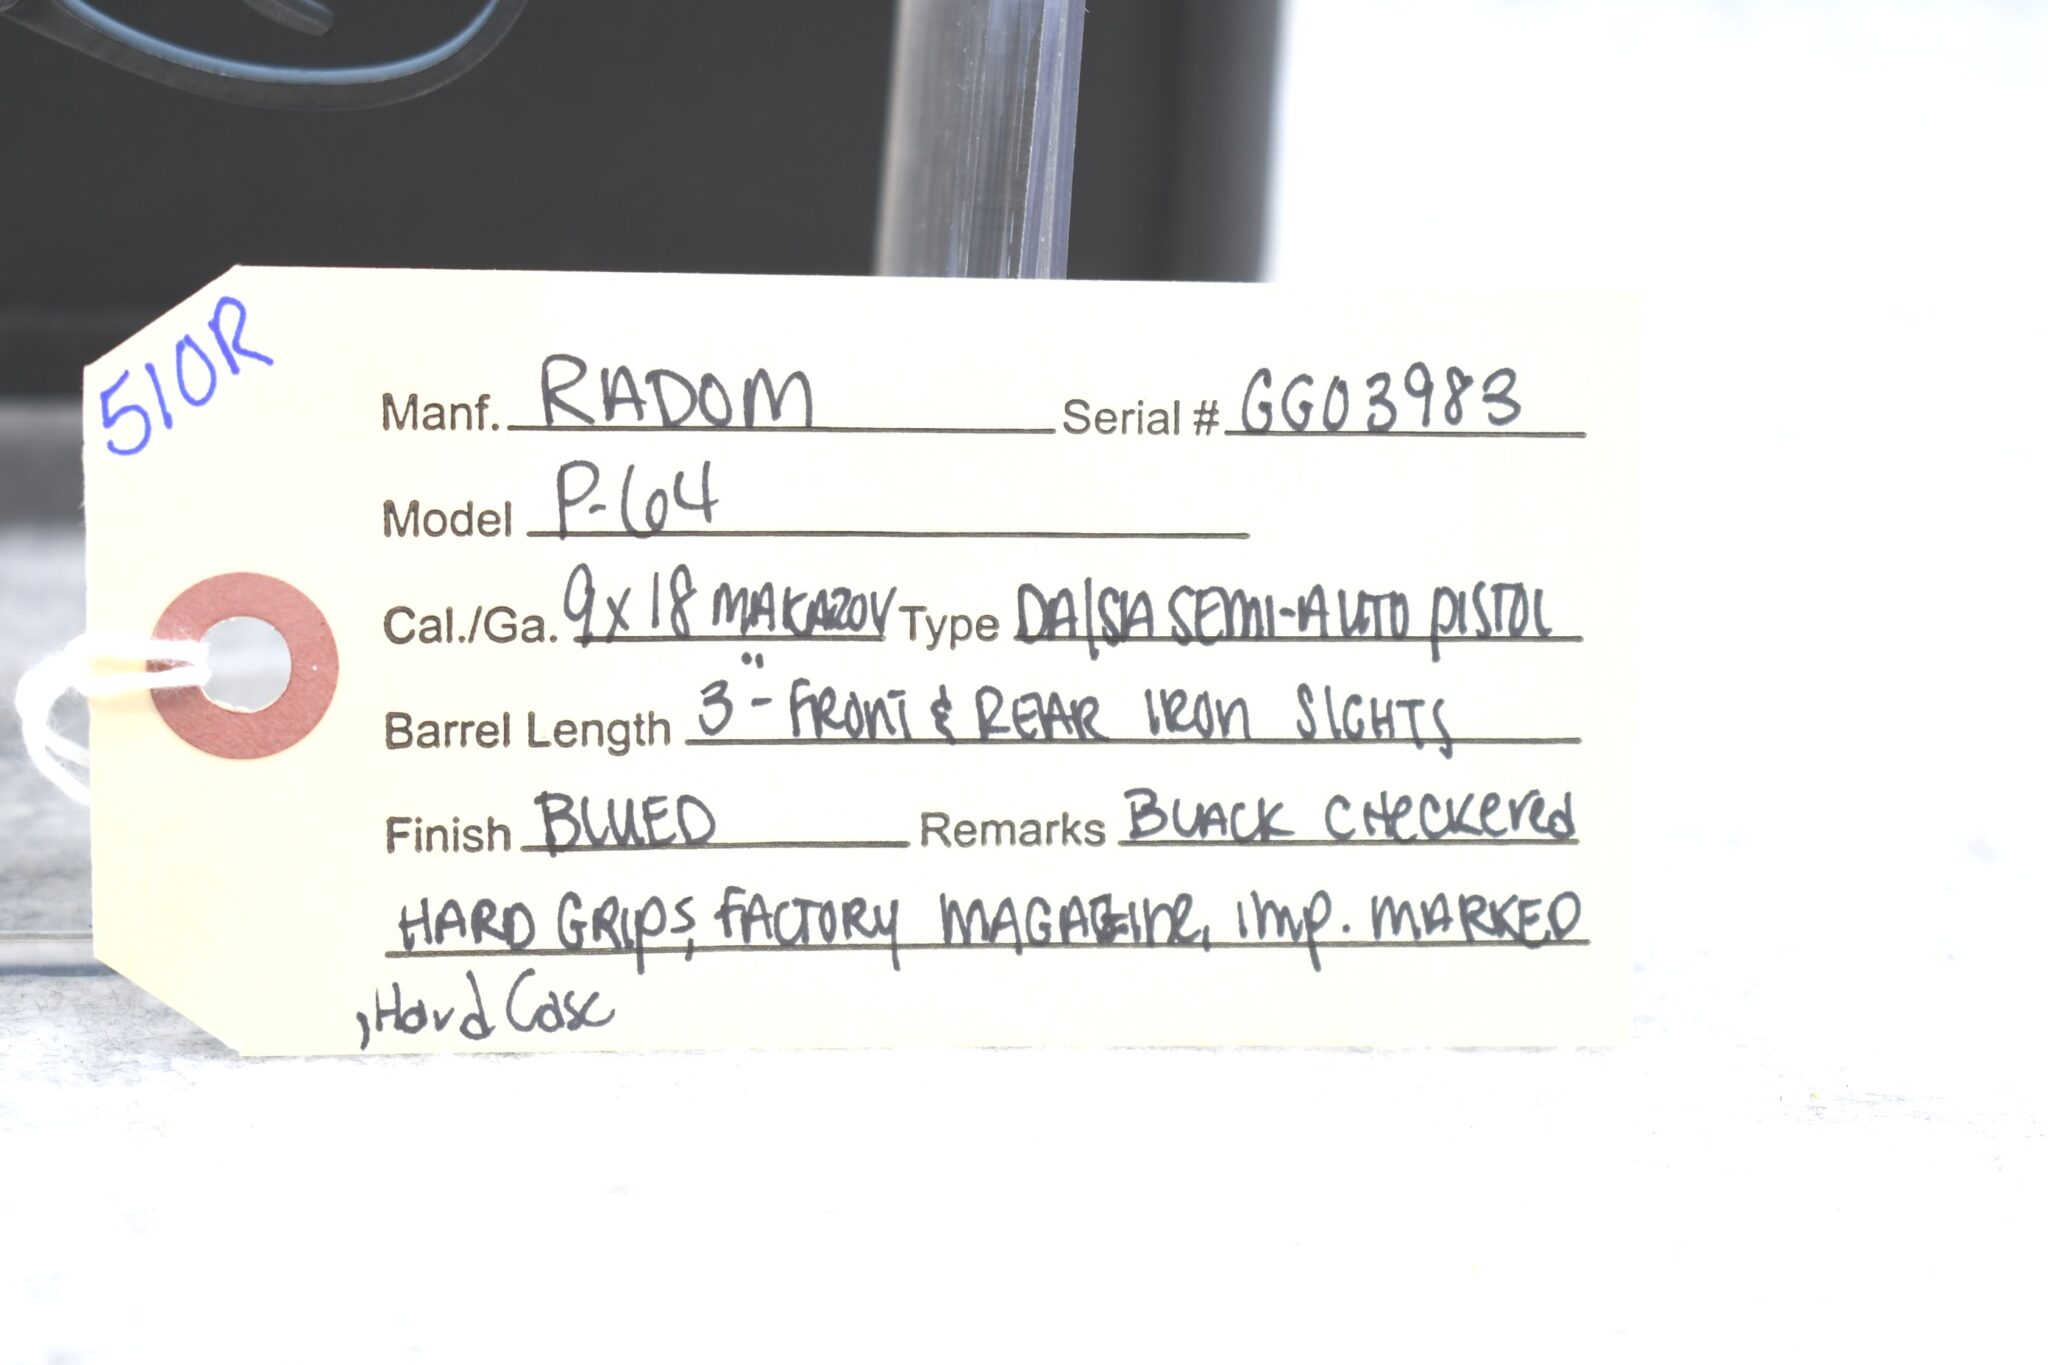 510R
Manf. RADOM Serial # GG03983
Model P-64
Cal./Ga. 9x18 MAKAROV Type DA/SA SEMI-AUTO PISTOL
Barrel Length 3" - FRONT & REAR IRON SIGHTS
Finish BLUED Remarks BLACK CHECKERED
HARD GRIPS, FACTORY MAGAZINE, IMP. MARKED
, Hard Case